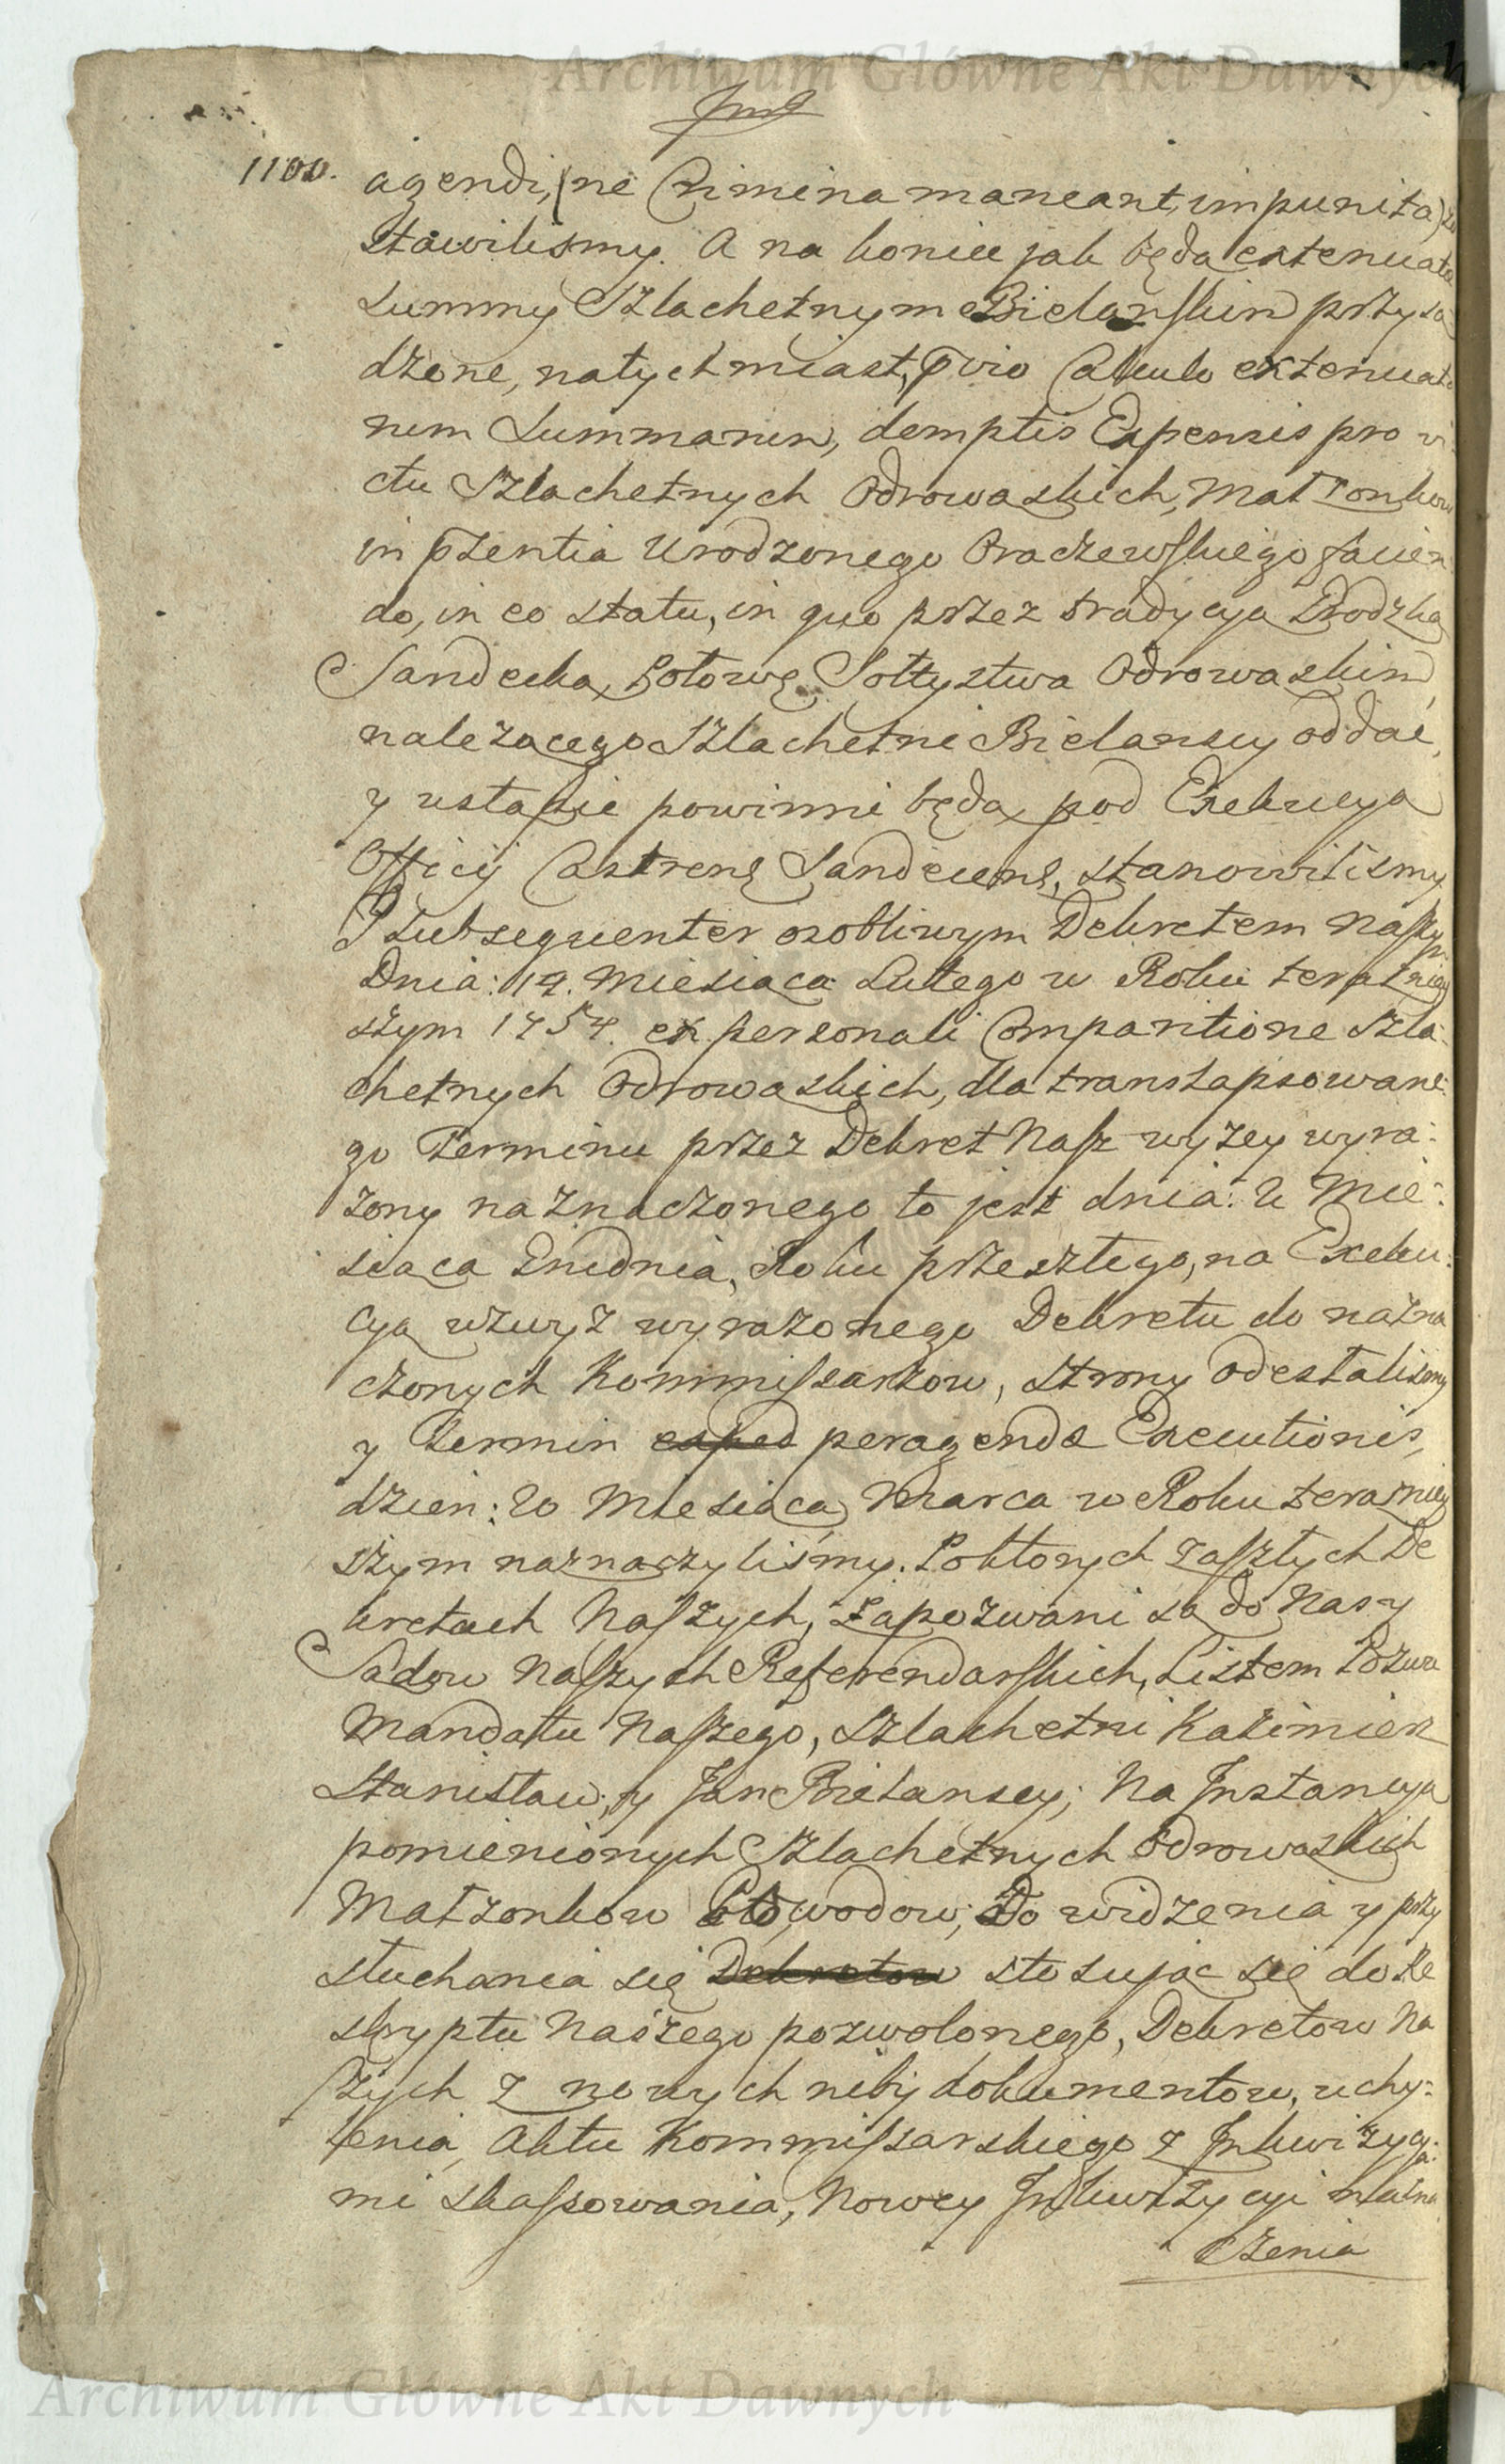 Archiwum Główne Akt Dawnych
1100.
agendi, (ne Crimina maneant impunita) zo
stawilismy. A na koniec jak będą extenuata
Summy Szlachetnym Bielanskim przysą
dzone, natychmiast, pvio Calculo extenuata
num Summarum, demptis Expensis pro vi
ctu Szlachetnych Odrowąskich, Małżonkow
in pzentia Urodzonego Oraczewskiego facien
do, in eo statu, in quo przez tradycyą Grodzką
Sandecką, Połowę Sołtystwa Odrowąskim
nalezącego Szlachetni Bielanscy oddac,
y ustąpic powinni będą, pod Exekucyą
Officij Castrens Sandecens, stanowilismy.
Y Subsequenter osobliwym Dekretem Naszym
Dnia: 19. Miesiąca Lutego w Roku terazniey
szym 1754. ex personali Comparitione Szla:
chetnych Odrowąskich, dla translapsowane:
go Terminu przez Dekret Nasz wyzey wyra:
zony naznaczonego to jest dnia: 2 Mie:
siąca Grudnia, Roku przeszłego, na Exeku:
cyą wzwyż wyrazonego Dekretu do nazna
czonych Kommissarzow, strony odesłalismy
y Termin esped peragendæ Executionis,
dzien: 20 Miesiąca Marca w Roku teraźniey
szym naznaczylismy. Poktorych zaszłych De
kretach Naszych, Zapozwani są do Nas y
Sądow Naszych Referendarskich, Listem Pozwu
Mandatu Naszego, Szlachetni Kazimierz
Stanisław, y Jan Bielanscy; Na Instancyą
pomienionych Szlachetnych Odrowąskich
Małzonkow Powodow; Do widzenia y przy
słuchania się Dekretow stosując się do Re
skryptu Naszego pozwolonego, Dekretow Na
szych z nowych niby dokumentow, uchy:
lenia, Aktu Kommissarskiego z Inkwizycya:
mi skassowania, Nowey Inkwizycyi nazna
czenia
Archiwum Główne Akt Dawnych